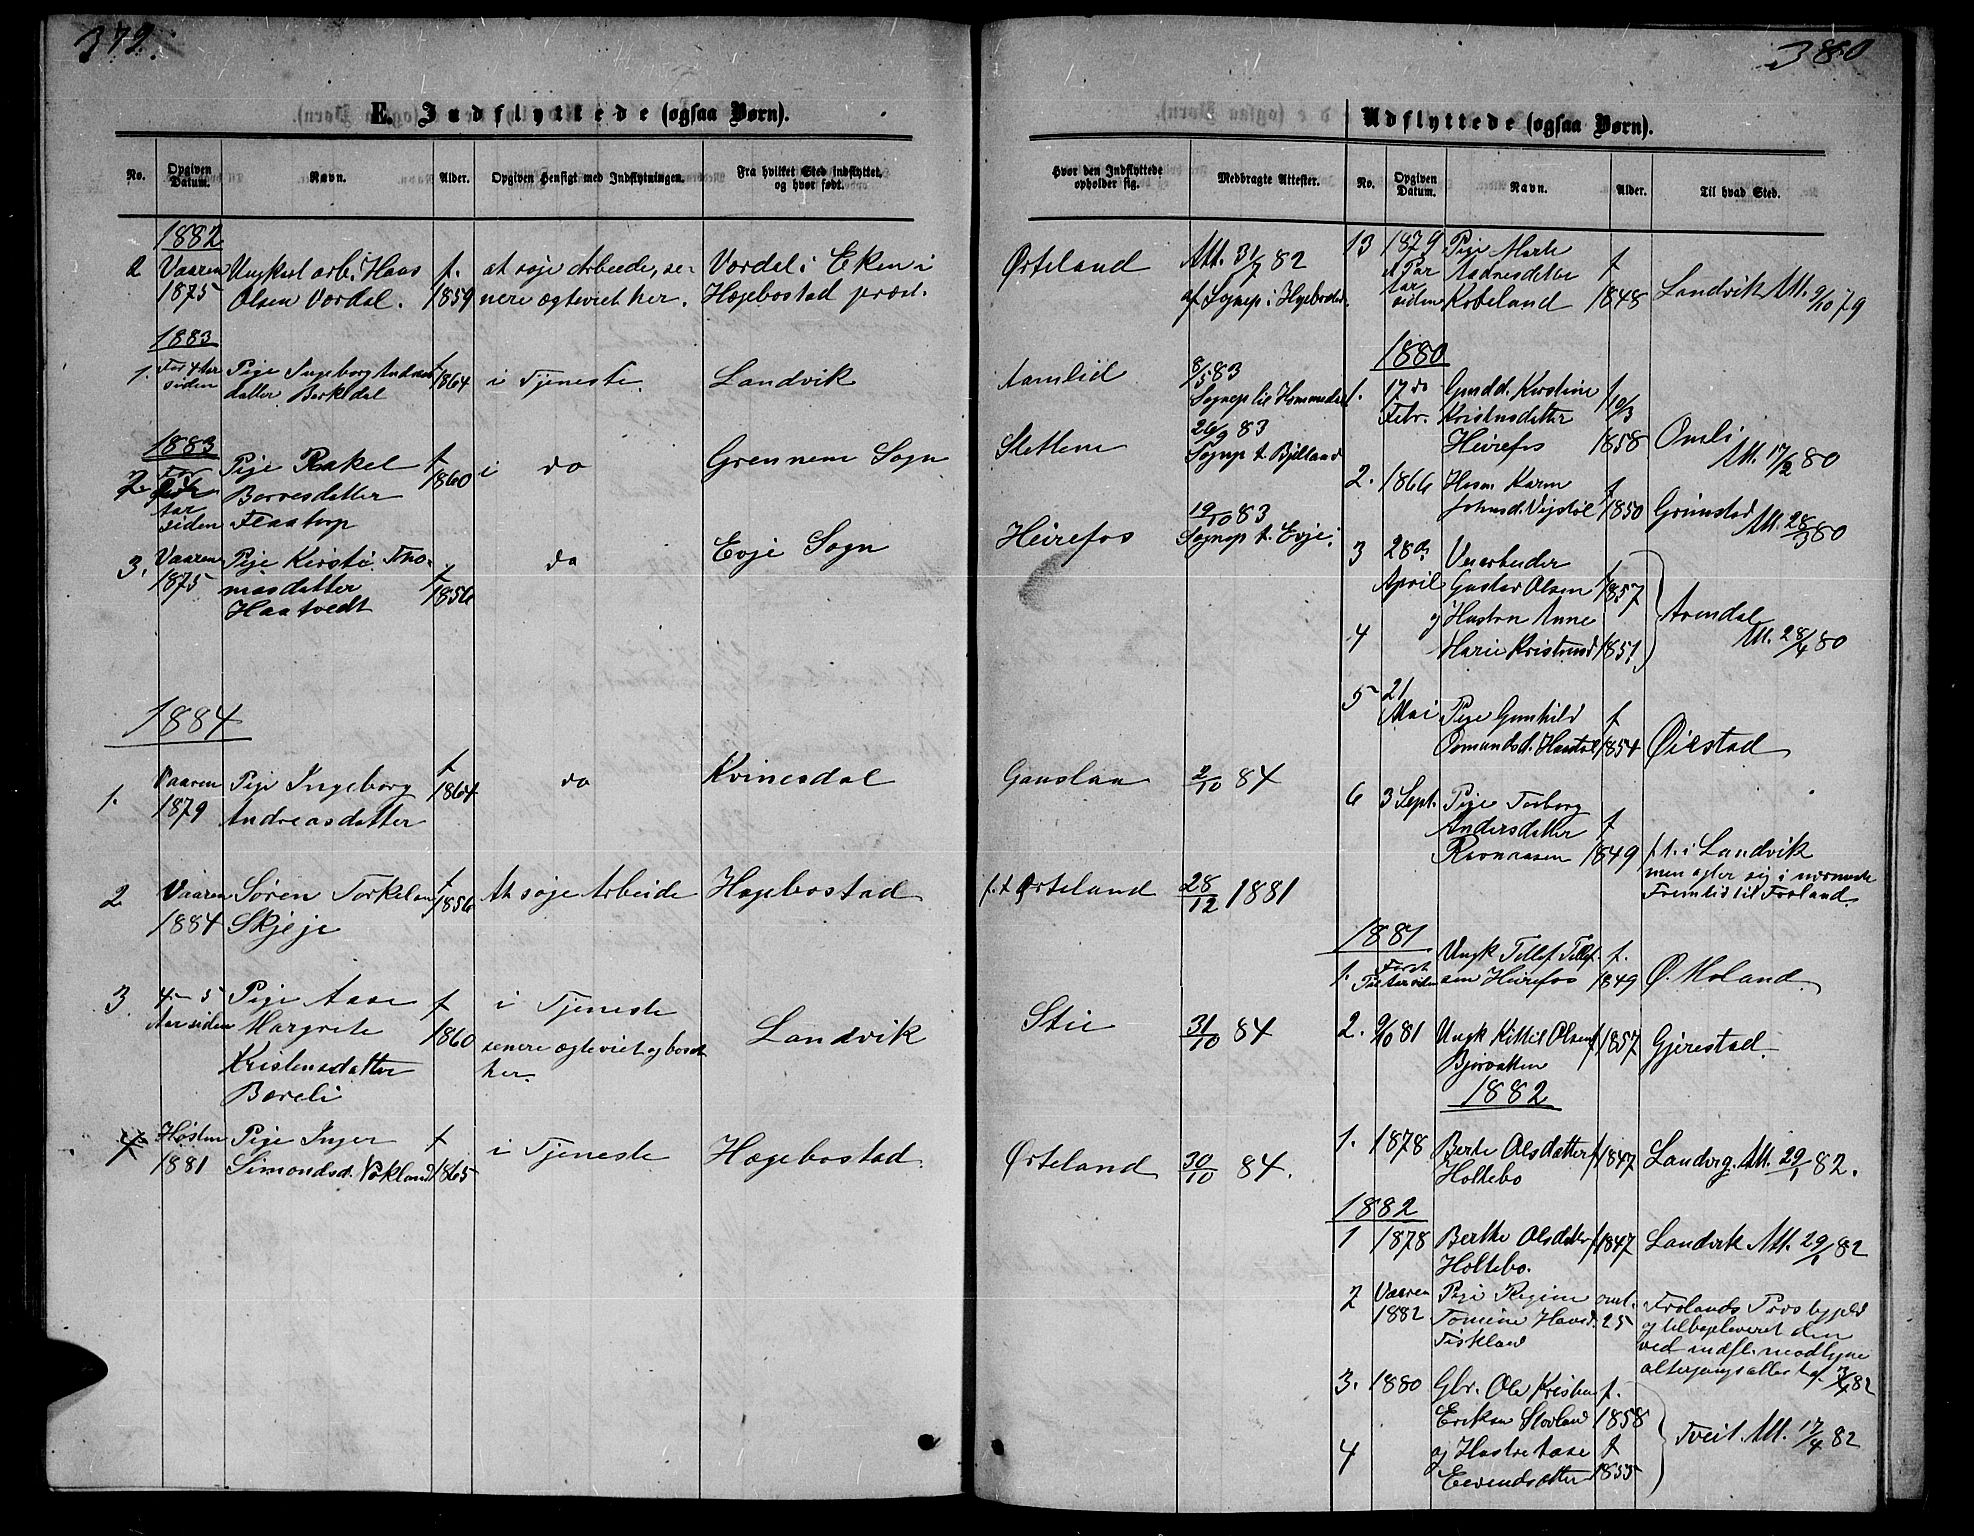 379.
E. Indflyttede (ogsaa Børn).
No. Opgiven Datum. Navn. Alder. Opgiven Hensigt med Indflytningen. Fra hvilket Sted indflyttet, og hvor født.
1882
2 Vaaren Ungkarl arb. Haas f. at søje Arbeide, se- Vordal i Eken i
1875 Olsen Vordal. 1859 nere ægteviet her. Hægebostad præst.
1883
1. For 4 Aar Pige Ingeborg f. i Tjeneste. Landvik
siden datter Berkedal 1864
1883
2. For Pige Rakel f i do Grennem Sogn
Børresdatter 1860
aar
siden Flaatorp
3. Vaaren Pige Kirsti Tho- f do Evje Sogn
1875 masdatter 1856
Haatvedt
1884
1. Vaaren Pige Ingeborg f 1864 do Kvinesdal
1879 Andreasdatter
2 Vaaren Søren Torkelsen f 1856 At søje Arbeide Hægebostad
1884 Skjeje
3. 4-5 Pige Aase f i Tjeneste Landvik
Aar siden Margrete 1860 senere ægteviet og bosat
Kristensdatter her.
Bœreli
4 Høsten Pige Inger f i Tjeneste Hægebostad.
1881 Simondsd. 1865
380
Udflyttede (ogsaa Børn).
Hvor den Indflyttede opholder sig. Medbragte Attester. No. Opgiven Datum. Navn. Alder. Til hvad Sted.
Ørteland Att. 31/7 82
af Sognep. i Hægebostad.
Aamlid 8/5 83
Sognep. til Hommedal
Slettene 26/9 83
Sognep t. Bjelland
Heirefos 19/10 83
Sognep t. Evje.
Gauslaa 2/10 84
p.t. Ørteland 28/12 1881
Stie 31/10 84
Ørteland 30/10 84.
13 1879 Pige Marte f
Aadnesdatter
siden Kobeland 1848 Landvik Att. 9/10 79
1880
1. 17de Gmd. Kirstine f 10/3
Febr. Kristensdatter
Heirefos 1858 Omli
Att. 17/2 80
2. 1866 Husm. Karen f
Johnsd. Vegstøl 1850 Grimstad Att. 28/3 80
3 28de Veiarbeider f
April Gustav Olsen 1857
4 og Hustru Anne
Marie Kristensd. 1851
Arendal
Att. 28/4 80
5 21 Pige Gunhild f
Mai Osmundsd. 1854 Øiestad
6 3 Sept. Pige Torborg
Andersdatter f
Ravnaasen 1849 p.t. i Landvik
men agter sig i nærmeste
Fremtid til Froland.
1881
1. Først Ungk Tellef Tellef- f.
sen Heirefos 1849 Ø. Moland
2. 9/10 81 Ungk Kittil Olsen f 1857 Gjerestad.
Bjorvatten
1882
1. 1878 Berte Olsdatter f 1847 Landvig. Att. 29/1 82.
Holtebo
1882
1 1878 Berthe Olsdatter f 1847 Landvik Att. 29/1 82
Holtebo.
2 Vaaren Pige Regine omt. Frolands
1882 Tomine 25 og tilbageleveret den
ved indfl.
3. 1880 Gbr. Ole Kristian f.
Eriksen 1858
4 og Hustru Aase f
Eivindsdatter 1855
Tveit. Att. 17/4 82